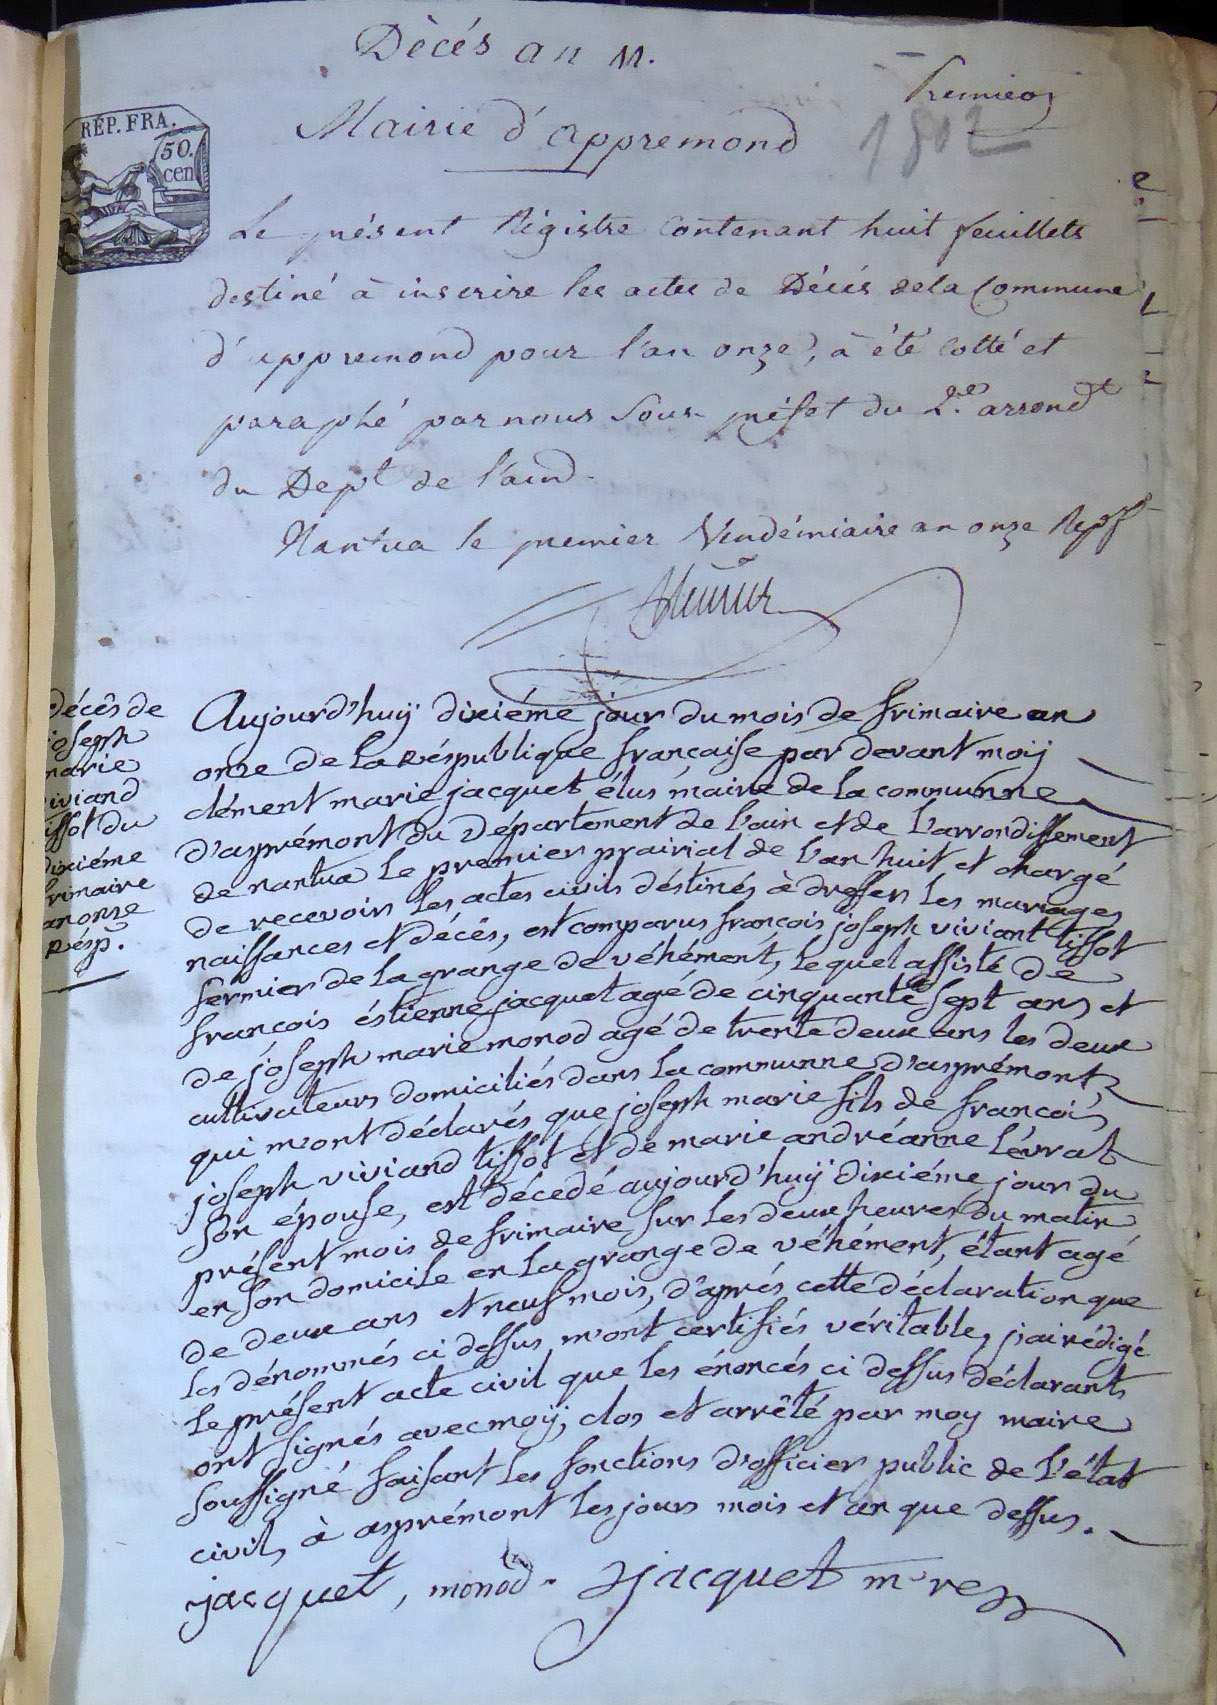 Décés an 11.
Premier
Mairie d'appremond
1802
RÉP. FRA.
50.
cen
Le présent Régistre Contenant huit feuillets
destiné à inscrire les actes de Décés de la Commune
d'appremond pour l'an onze, à été Cotté et
paraphé par nous Sous-préfet du 2.e arrondt
du Dept de l'ain.
Nantua le premier Vendémiaire an onze
décès de
joseph
marie
viviand
tissot du
dixiéme
frimaire
an onze
Résp.
Aujourd'huÿ dixiéme jour du mois de frimaire an
onze de la Réspublique française par devant moÿ
clément marie jacquet élus maire de la communne
d'asprémont du Département de l'ain et de l'arrondissement
de nantua le premier prairial de l'an huit et chargé
de recevoir les actes civils déstinés à dresser les mariages
naissances et décés, est comparus françois joseph viviant tissot
fermier de la grange de véhément, lequel assisté de
françois éstienne jacquet agé de cinquante sept ans et
de joseph marie monod agé de trente deux ans les deux
cultivateurs domiciliés dans la communne d'asprémont
qui m'ont déclarés que joseph marie fils de francois
joseph viviand tissot et de marie andréanne lévrat
son épouse, est décedé aujourd'huÿ dixiéme jour du
présent mois de frimaire sur les deux heures du matin
en son domicile en la grange de véhément, étant agé
de deux ans et neuf mois, d'aprés cette déclaration que
les dénommés ci dessus m'ont certifiés véritable, j'ai rédigé
le présent acte civil que les énoncés ci dessus déclarants
ont signés avec moÿ, clos et arrêté par moy maire
soussigné faisant les fonctions d'officier public de l'état
civil, à asprémont les jours mois et an que dessus.
jacquet, monod. jacquet m re